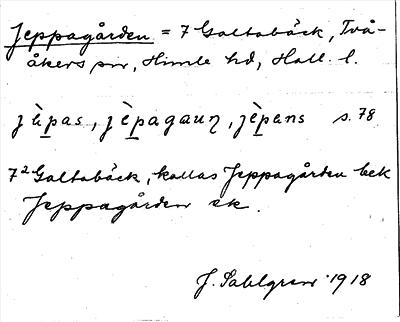 Jeppagården = 7 Galtabäck, Två-
åkers sn, Himle hd, Hall. l.
jèpas, jèpagauɳ, jèpens s. 78
7² Galtabäck, kallas Jeppagården bek
Jeppagården sk.
J. Sahlgren 1918